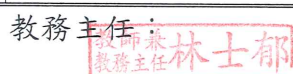 教務主任：
教師兼
教務主任 林士郁